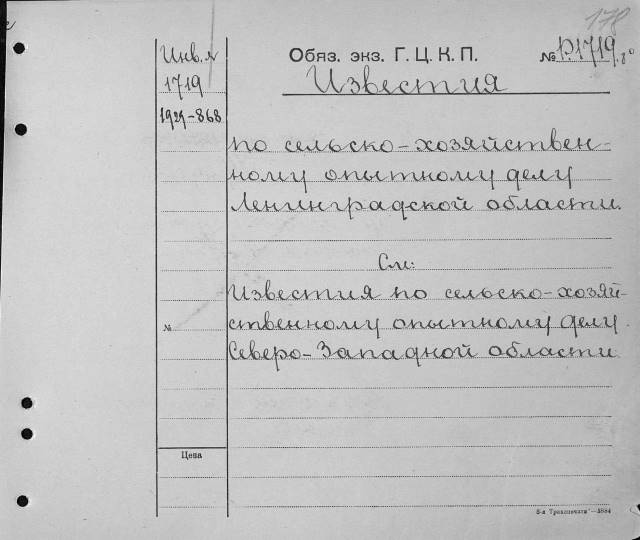 178
Инв. №
1719
1929-868
Обяз. экз. Г. Ц. К. П. № Р.1719, 8°
Известия
по сельско-хозяйствен-
ному опытному делу
Ленинградской области.
См:
Известия по сельско-хозяй-
ственному опытному делу
Северо-Западной области
№
Цена
5884